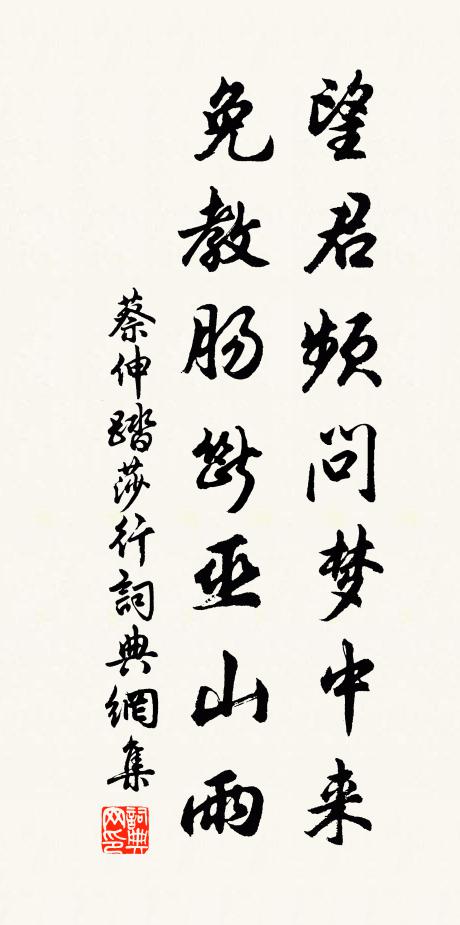 望君频问梦中来
免教肠断巫山雨
蔡伸踏莎行詞典網集
詞典网印